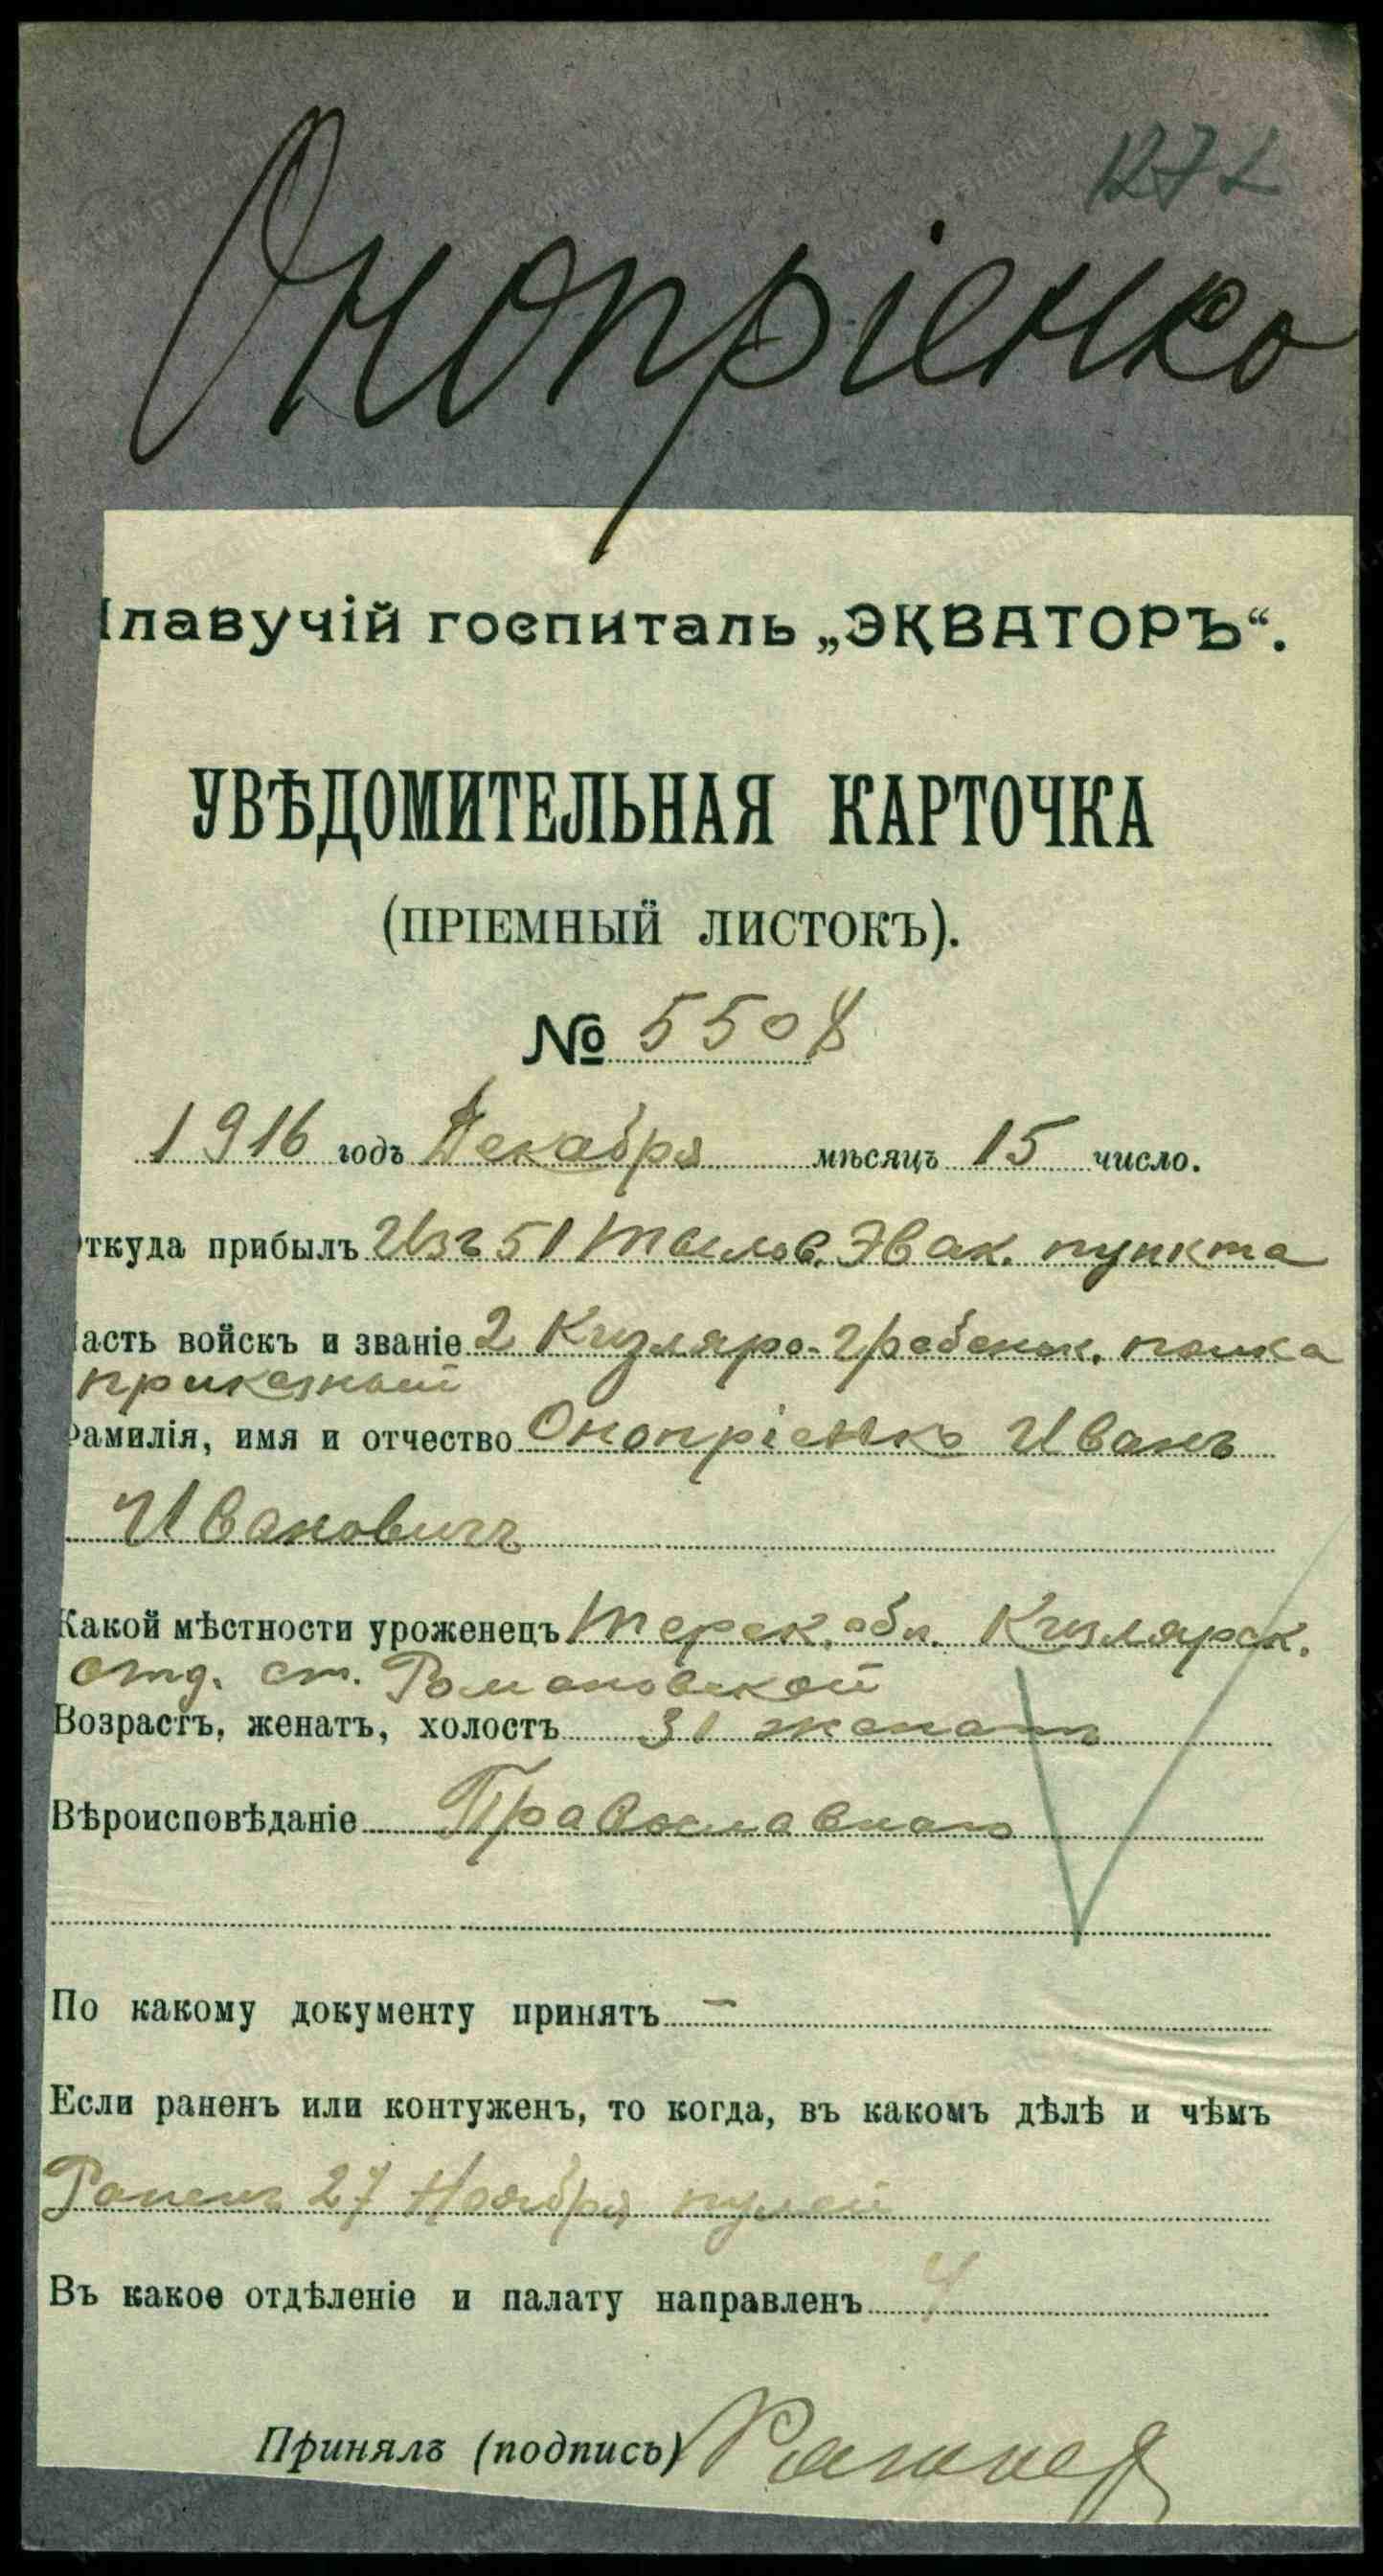 1272
Онопріенко
Плавучій госпиталь „ЭКВАТОРЪ“.
УВѢДОМИТЕЛЬНАЯ КАРТОЧКА
(ПРІЕМНЫЙ ЛИСТОКЪ).
№ 5508
1916 годъ Декабря мѣсяцъ 15 число.
Откуда прибылъ Изъ 51 Тылов. Эвак. пункта
асть войскъ и званіе 2 Кизляро-Гребенск. полка
приказный
Фамилія, имя и отчество Онопріенко Иванъ
Ивановичъ
Какой мѣстности уроженецъ Терск. обл. Кизлярск.
отд. ст. Романовской
Возрастъ, женатъ, холостъ 31 женатъ
Вѣроисповѣданіе Православнаго
По какому документу принятъ —
Если раненъ или контуженъ, то когда, въ какомъ дѣлѣ и чѣмъ
Раненъ 27 Ноября пулей
Въ какое отдѣленіе и палату направленъ 4
Принялъ (подпись)